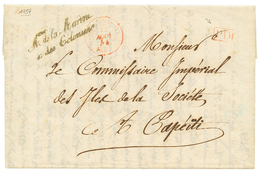 Mre de la Marine
et des Colonies
Monsieur
Le Commissaire Impérial
des Iles de la Société
à Papéiti